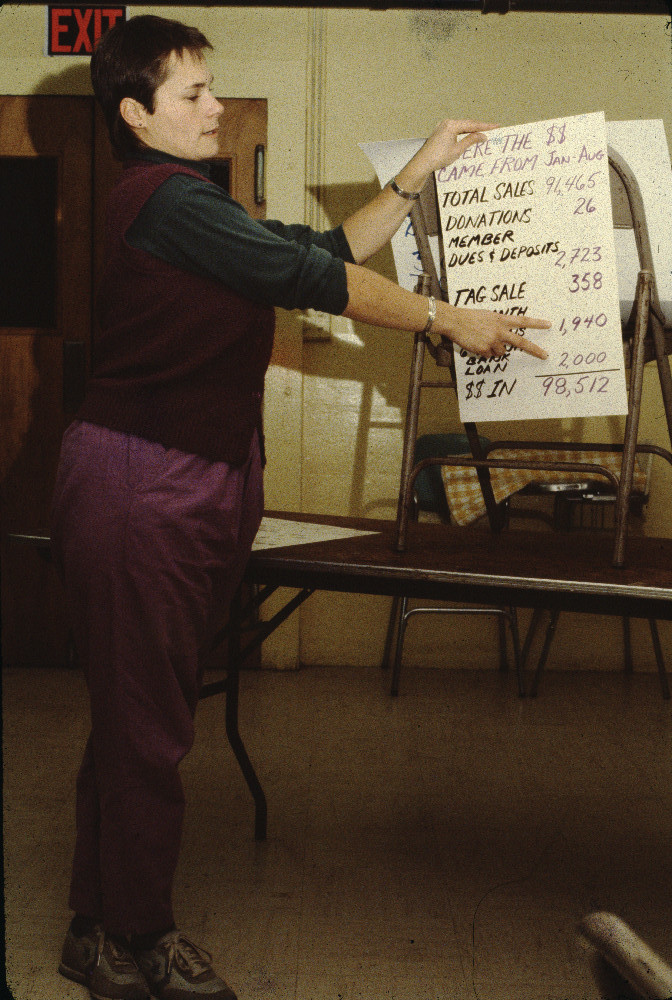 EXIT
THE $$
CAME FROM JAN-AUG
TOTAL SALES 91,465
DONATIONS 26
MEMBER
DUES & DEPOSITS 2,723
TAG SALE 358
1,940
BANK
LOAN 2,000
$$ IN 98,512